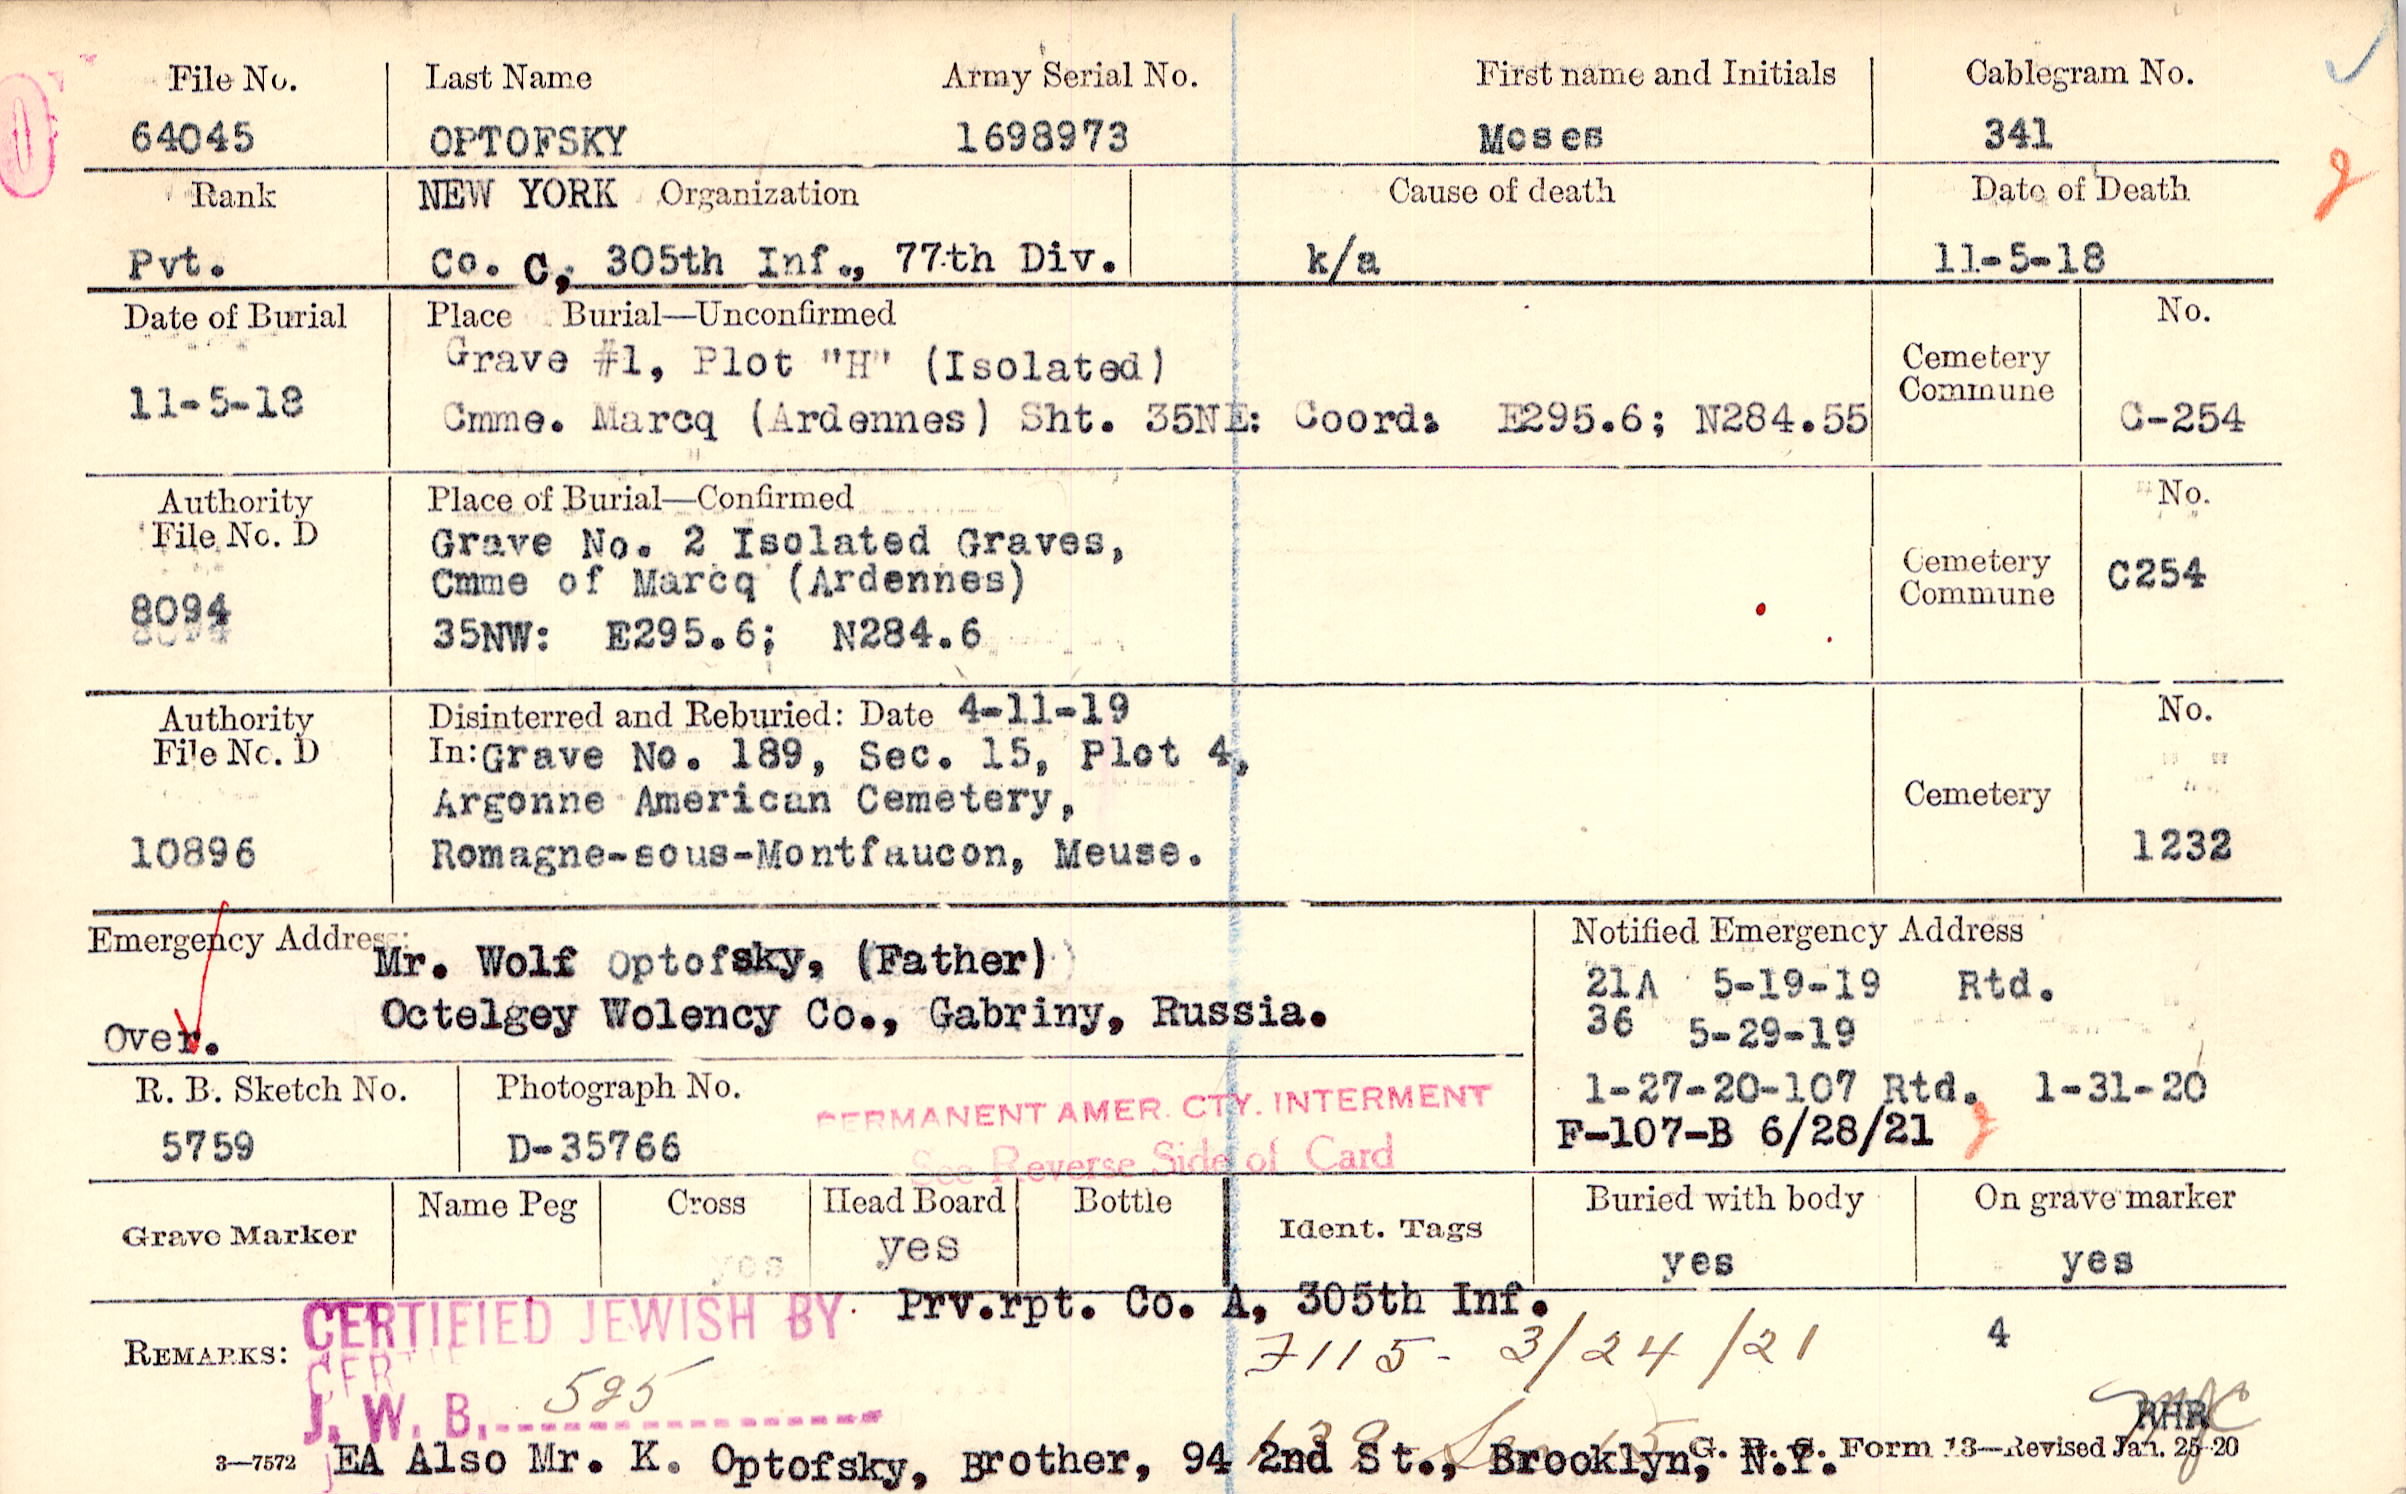 File No. Last Name Army Serial No. First name and Initials Cablegram No.
64045 OPTOFSKY 1698973 Moses 341
Rank NEW YORK Organization Cause of death Date of Death
Pvt. Co. C, 305th Inf., 77th Div. k/a 11-5-18
Date of Burial Place Burial—Unconfirmed No.
Grave #1, Plot "H" (Isolated) Cemetery
Commune
11-5-18 Cmme. Marcq (Ardennes) Sht. 35NE: Coord: E295.6; N284.55 C-254
Authority Place of Burial—Confirmed No.
File No. D Grave No. 2 Isolated Graves,
Cmme of Marcq (Ardennes) Cemetery C254
Commune
8094 35NW: E295.6; N284.6
Authority Disinterred and Reburied: Date 4-11-19 No.
File No. D In: Grave No. 189, Sec. 15, Plot 4,
Argonne American Cemetery, Cemetery
10896 Romagne-sous-Montfaucon, Meuse. 1232
Emergency Address: Notified Emergency Address
Mr. Wolf Optofsky, (Father) 21A 5-19-19 Rtd.
Octelgey Wolency Co., Gabriny, Russia. 36 5-29-19
Over.
R. B. Sketch No. Photograph No. 1-27-20-107 Rtd. 1-31-20
PERMANENT AMER. CTY. INTERMENT
5759 D-35766 F-107-B 6/28/21
See Reverse Side of Card
Grave Marker Name Peg Cross Head Board Bottle Ident. Tags Buried with body On grave marker
yes yes yes yes
CERTIFIED JEWISH BY Prv.rpt. Co. A, 305th Inf.
REMARKS: 7115- 3/24/21 4
J. W. B. 525
RHR
3—7572 EA Also Mr. K. Optofsky, Brother, 94 2nd St., Brooklyn, N.Y. G. R. S. Form 13—Revised Jan. 25-20